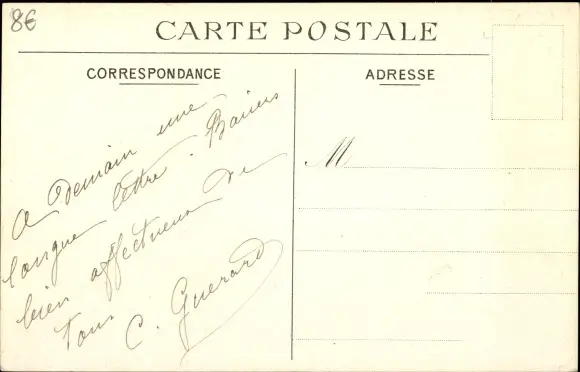 8€
CARTE POSTALE
CORRESPONDANCE
ADRESSE
M
A demain une
longue lettre. Baisers
bien affectueux de
tous
C. Guerard